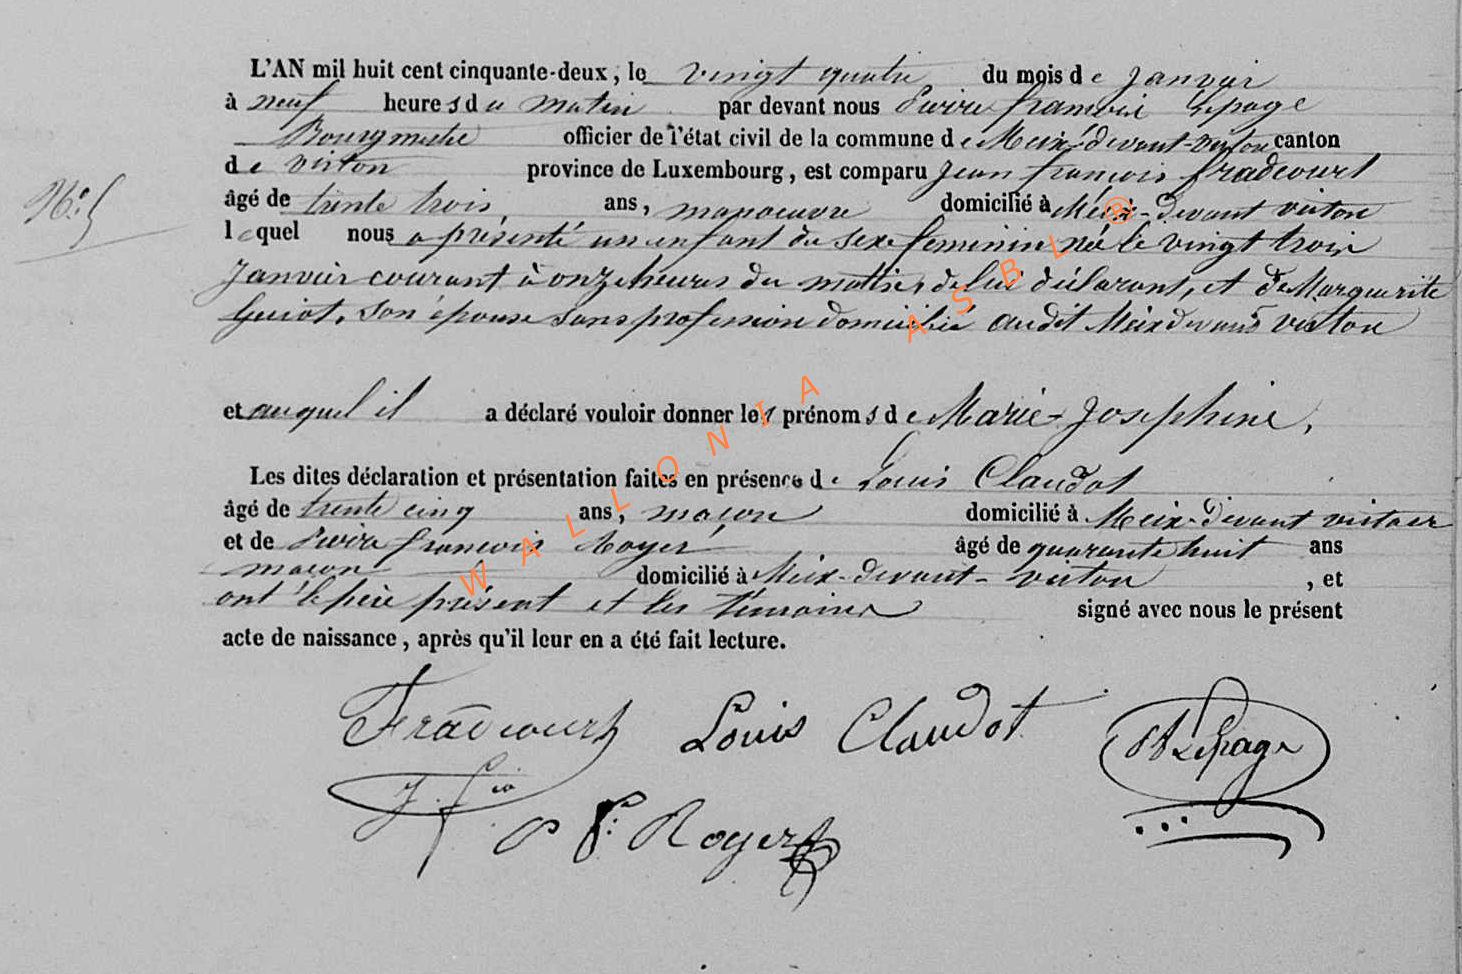 L'AN mil huit cent cinquante-deux, le vingt quatre du mois de Janvier
à neuf heures du matin par devant nous Pierre francois Lepage
Bourgmestre officier de l'état civil de la commune de Meix-devant-virton canton
de virton province de Luxembourg, est comparu Jean francois fradcourt
N.° 5
âgé de trente trois ans, manoeuvre domicilié à Meix-devant virton
lequel nous a présenté un enfant du sexe feminin née le vingt trois
Janvier courant à onze heures du matin, de lui déclarant, et de Marguerite
Guiot, son épouse sans profession domiciliée audit Meix devant virton
et auquel il a déclaré vouloir donner les prénoms de Marie-Josephine,
Les dites déclaration et présentation faites en présence de Louis Claudot
âgé de trente cinq ans, maçon domicilié à Meix-devant virton
et de Pierre francois Roger âgé de quarante huit ans
maçon domicilié à Meix-devant-virton, et
ont le père présent et les témoins signé avec nous le présent
acte de naissance, après qu'il leur en a été fait lecture.
Fradcourt Louis Claudot Lepage
J. f.ois
P f: Roger
WALLONIA ASBL ®